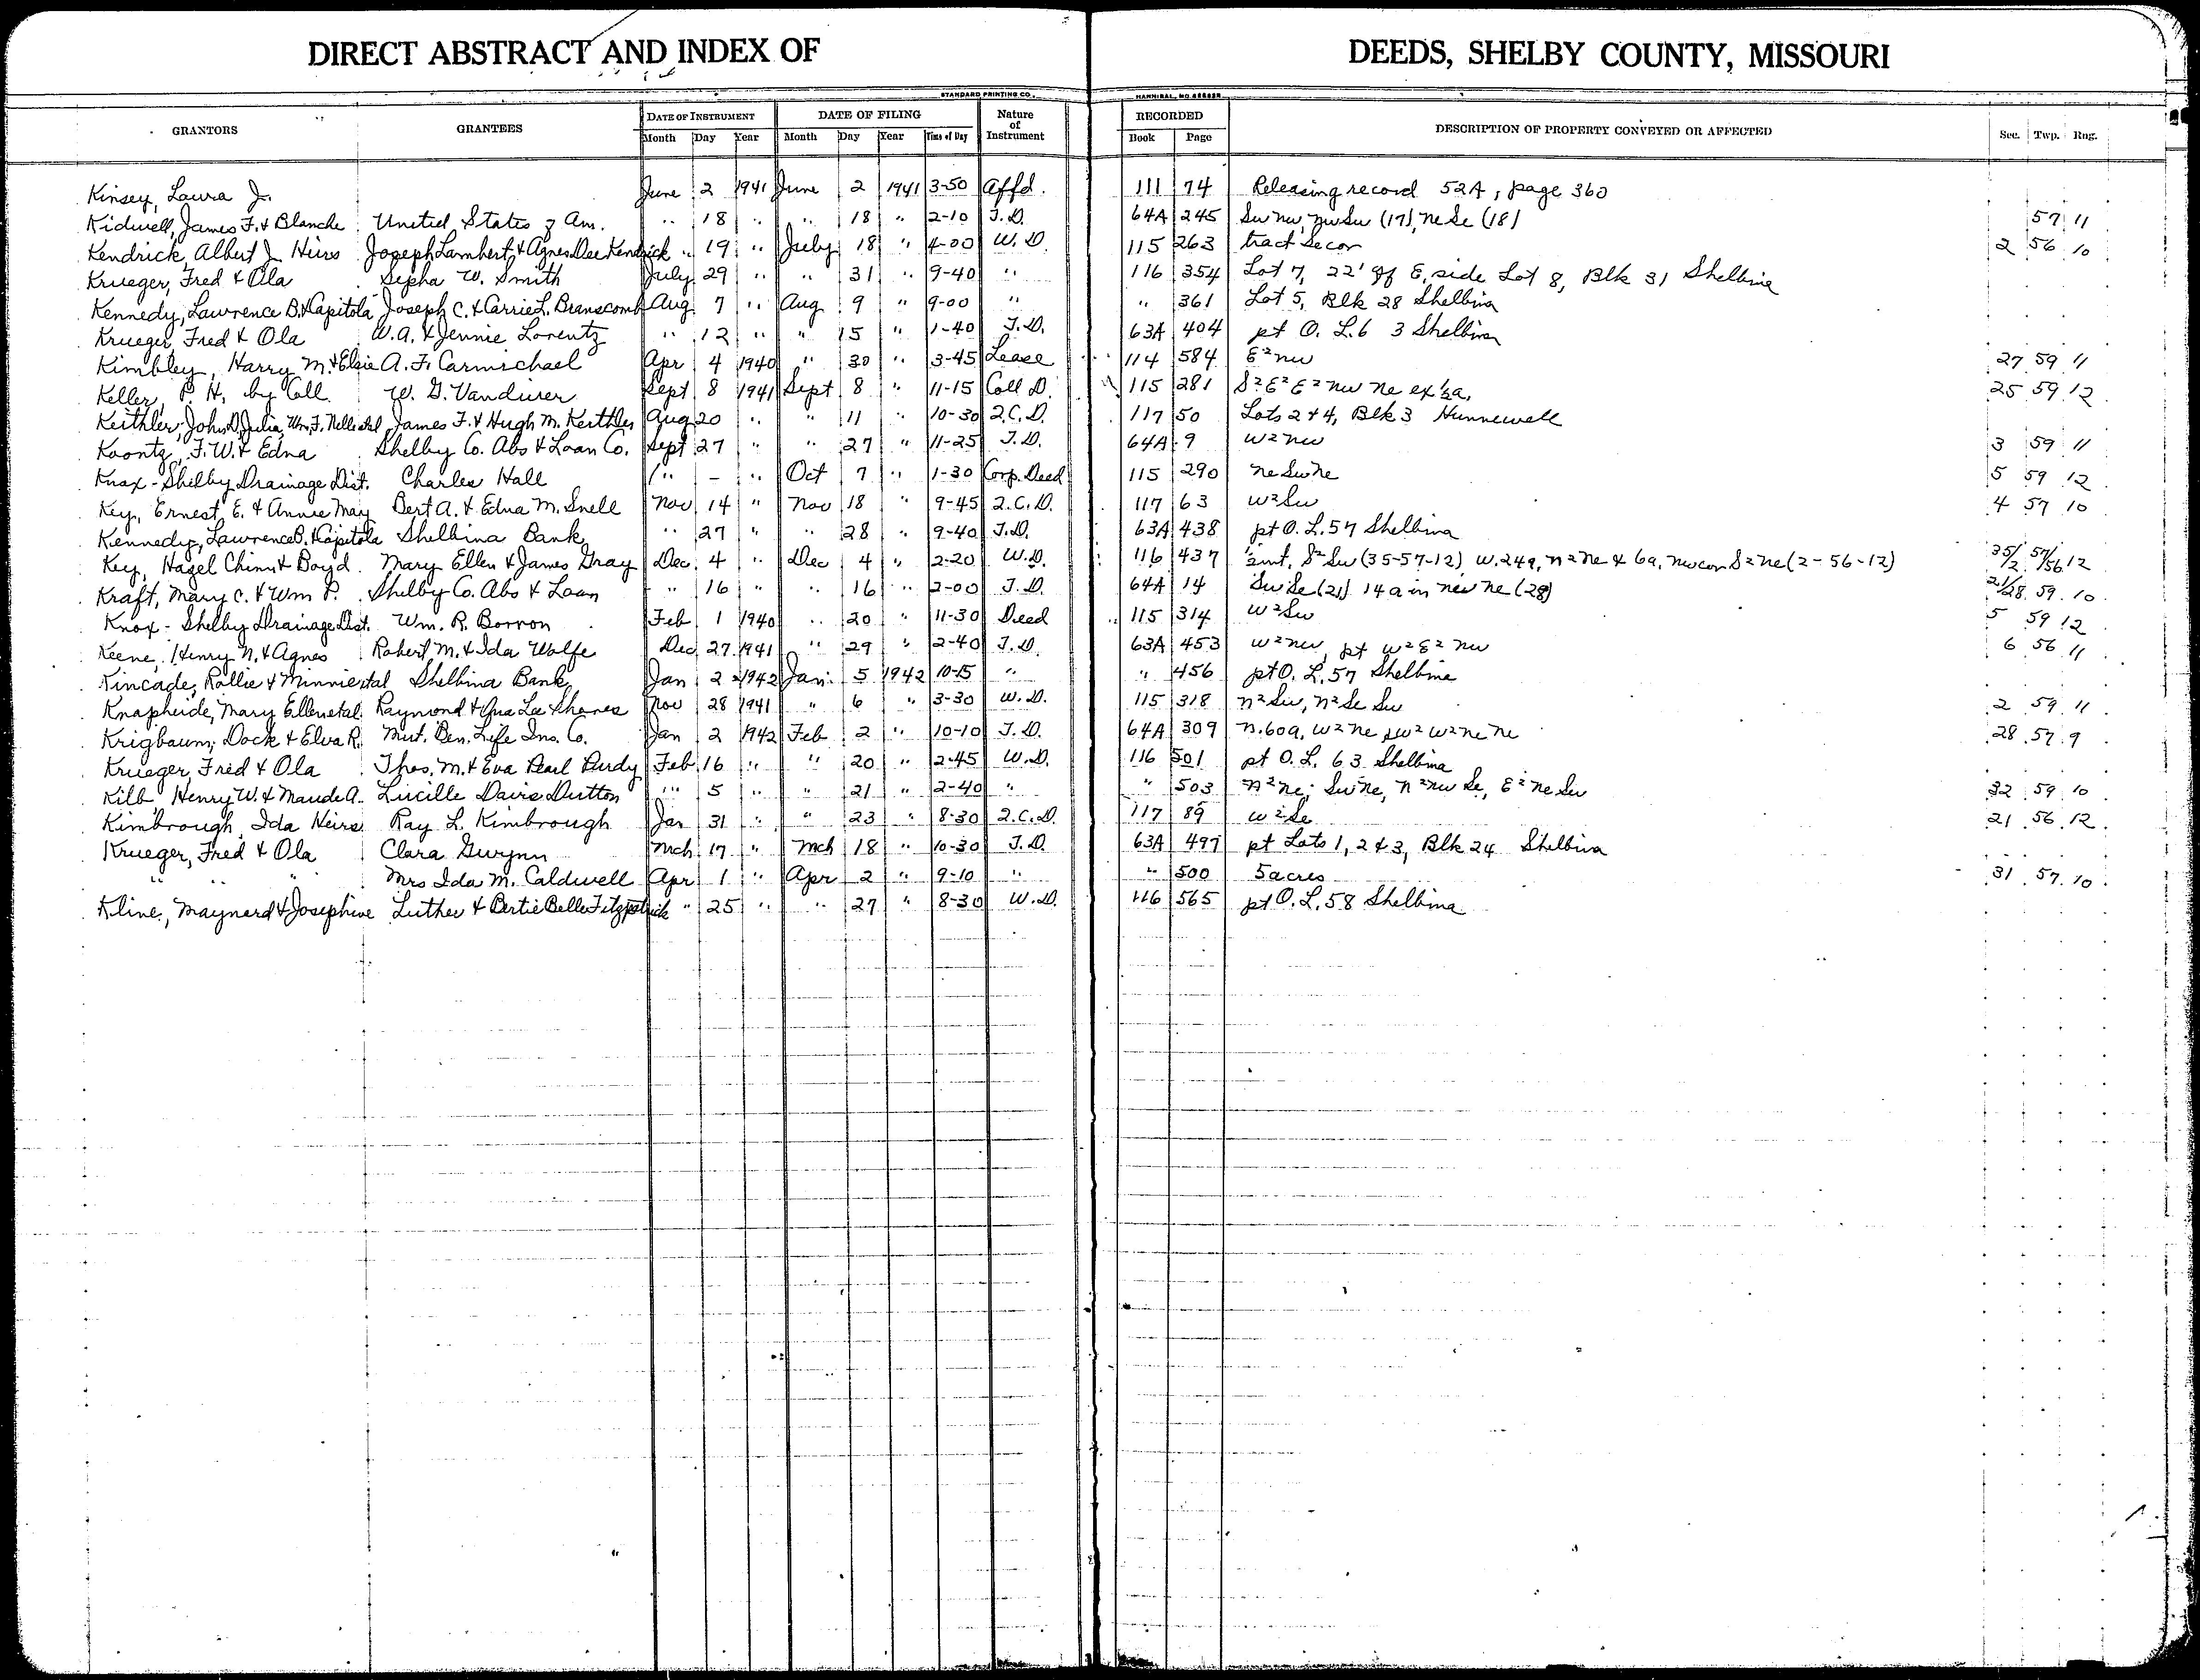 DIRECT ABSTRACT AND INDEX OF DEEDS, SHELBY COUNTY, MISSOURI
STANDARD PRINTING CO. HANNIBAL, MO.
GRANTORS GRANTEES DATE OF INSTRUMENT DATE OF FILING Nature of Instrument RECORDED DESCRIPTION OF PROPERTY CONVEYED OR AFFECTED Sec. Twp. Rng.
Month Day Year Month Day Year Time of Day Book Page
Kinsey, Laura J. June 2 1941 June 2 1941 3-50 Affd. 111 74 Releasing record 52A, page 360
Kidwell, James F. & Blanche United States of Am. " 18 " " 18 " 2-10 T.D. 64A 245 Sw nw, nw Sw (17), ne Se (18) 57 11
Kendrick, Albert J. Heirs Joseph Lambert & Agnes Dee Kendrick " 19 " July 18 " 4-00 W.D. 115 263 tract Se cor 2 56 10
Krueger, Fred & Ola Sepha W. Smith July 29 " " 31 " 9-40 " 116 354 Lot 7, 22' off E. side Lot 8, Blk 31 Shelbina
Kennedy, Lawrence B. & Capitola Joseph C. & Carrie L. Branscomb Aug 7 " Aug 9 " 9-00 " " 361 Lot 5, Blk 28 Shelbina
Krueger, Fred & Ola W.A. & Jennie Lorentz " 12 " " 15 " 1-40 T.D. 63A 404 pt O. L. 6 3 Shelbina
Kimbley, Harry M. & Elsie A. F. Carmichael Apr 4 1940 " 30 " 3-45 Lease 114 584 E² nw 27 59 11
Keller, P. H. by Coll. W. G. Vandiver Sept 8 1941 Sept 8 " 11-15 Coll D. 115 281 S² E² E² nw ne ex ½ a. 25 59 12
Keithler, John D, Julia, Wm. F. Nellie et al James F. & Hugh M. Keithler Aug 20 " " 11 " 10-30 Q.C.D. 117 50 Lots 2 & 4, Blk 3 Hunnewell
Koontz, F. W. & Edna Shelby Co. Abs & Loan Co. Sept 27 " " 27 " 11-25 T.D. 64A 9 W² nw 3 59 11
Knox-Shelby Drainage Dist. Charles Hall " - " Oct 7 " 1-30 Corp. Deed 115 290 ne Sw ne 5 59 12
Key, Ernest E. & Annie May Bert A. & Edna M. Snell Nov 14 " Nov 18 " 9-45 Q.C.D. 117 63 W² Sw 4 57 10
Kennedy, Lawrence B. & Capitola Shelbina Bank " 27 " " 28 " 9-40 T.D. 63A 438 pt O. L. 57 Shelbina
Key, Hazel Chinn & Boyd Mary Ellen & James Gray Dec 4 " Dec 4 " 2-20 W.D. 116 437 int. S² Sw (35-57-12) W. 24a, n² ne & 6a, nw cor S² ne (2-56-12) 35/2 57/56 12
Kraft, Mary C. & Wm P. Shelby Co. Abs & Loan " 16 " " 16 " 2-00 T.D. 64A 14 Sw Se (21) 14 a in nw ne (28) 21/28 59 10
Knox-Shelby Drainage Dist. Wm. R. Borron Feb 1 1940 " 20 " 11-30 Deed 115 314 W² Sw 5 59 12
Keene, Henry N. & Agnes Robert M. & Ida Wolfe Dec 27 1941 " 29 " 2-40 T.D. 63A 453 W² nw, pt W² E² nw 6 56 11
Kincade, Rollie & Minnie et al Shelbina Bank Jan 2 1942 Jan 5 1942 10-15 " " 456 pt O. L. 57 Shelbina
Knapheide, Mary Ellen et al. Raymond & Ona Lee Shores Nov 28 1941 " 6 " 3-30 W.D. 115 318 n² Sw, n² Se Sw 2 59 11
Krigbaum, Dock & Elva R. Mut. Ben. Life Ins. Co. Jan 2 1942 Feb 2 " 10-10 T.D. 64A 309 n. 60a, W² ne & W² W² ne ne 28 57 9
Krueger, Fred & Ola Thos. M. & Eva Pearl Purdy Feb 16 " " 20 " 2-45 W.D. 116 501 pt O. L. 63 Shelbina
Kilb, Henry W. & Maude A. Lucille Davis Dutton " 5 " " 21 " 2-40 " " 503 n² ne; Sw ne, n² nw Se, E² ne Sw 32 59 10
Kimbrough, Ida Heirs Ray L. Kimbrough Jan 31 " " 23 " 8-30 Q.C.D. 117 89 W² Se 21 56 12
Krueger, Fred & Ola Clara Gwynn Mch 17 " Mch 18 " 10-30 T.D. 63A 497 pt Lots 1, 2 & 3, Blk 24 Shelbina
" " " Mrs Ida M. Caldwell Apr 1 " Apr 2 " 9-10 " " 500 5 acres 31 57 10
Kline, Maynard & Josephine Luther & Bertie Belle Fitzpatrick " 25 " " 27 " 8-30 W.D. 116 565 pt O. L. 58 Shelbina